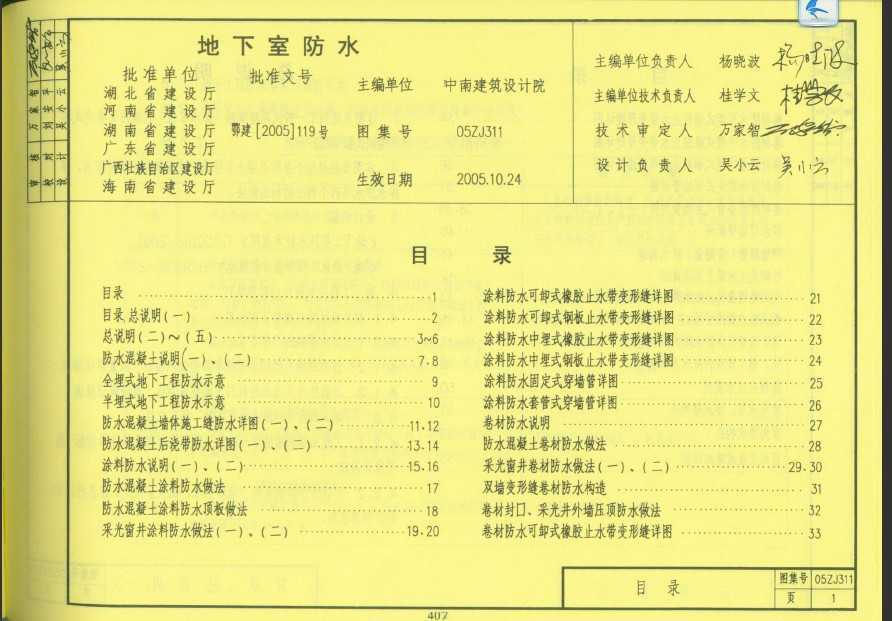 地下室防水
批准单位 批准文号
湖北省建设厅
河南省建设厅
湖南省建设厅 鄂建[2005]119号
广东省建设厅
广西壮族自治区建设厅
海南省建设厅
主编单位 中南建筑设计院
图集号 05ZJ311
生效日期 2005.10.24
主编单位负责人 杨晓波
主编单位技术负责人 桂学文
技术审定人 万家智
设计负责人 吴小云 吴小云
审核 万家智
校对
设计 吴小云
目录
目录 1
目录 总说明(一) 2
总说明(二)~(五) 3~6
防水混凝土说明(一)、(二) 7.8
全埋式地下工程防水示意 9
半埋式地下工程防水示意 10
防水混凝土墙体施工缝防水详图(一)、(二) 11.12
防水混凝土后浇带防水详图(一)、(二) 13.14
涂料防水说明(一)、(二) 15.16
防水混凝土涂料防水做法 17
防水混凝土涂料防水顶板做法 18
采光窗井涂料防水做法(一)、(二) 19.20
涂料防水可卸式橡胶止水带变形缝详图 21
涂料防水可卸式钢板止水带变形缝详图 22
涂料防水中埋式橡胶止水带变形缝详图 23
涂料防水中埋式钢板止水带变形缝详图 24
涂料防水固定式穿墙管详图 25
涂料防水套管式穿墙管详图 26
卷材防水说明 27
防水混凝土卷材防水做法 28
采光窗井卷材防水做法(一)、(二) 29.30
双墙变形缝卷材防水构造 31
卷材封口、采光井外墙压顶防水做法 32
卷材防水可卸式橡胶止水带变形缝详图 33
目录 图集号 05ZJ311
页 1
407